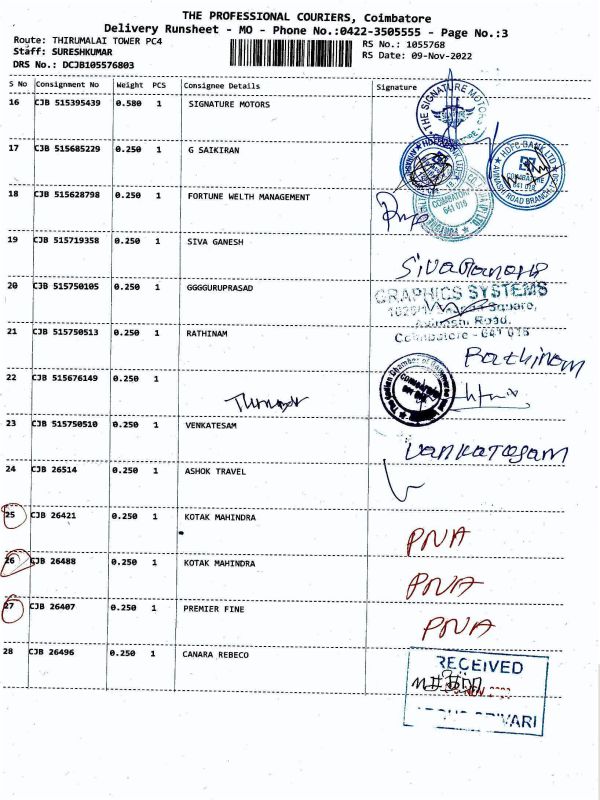 THE PROFESSIONAL COURIERS, Coimbatore
Delivery Runsheet - MO - Phone No.:0422-3505555 - Page No.:3
Route: THIRUMALAI TOWER PC4
RS No.: 1055768
Staff: SURESHKUMAR
RS Date: 09-Nov-2022
DRS No.: DCJB105576803
S No Consignment No Weight PCS Consignee Details Signature
16 CJB 515395439 0.580 1 SIGNATURE MOTORS
THE SIGNATURE MOTORS
17 CJB 515685229 0.250 1 G SAIKIRAN
HDFC BANK LTD
AVINASHI ROAD BRANCH
COIMBATORE
641 018
18 CJB 515628798 0.250 1 FORTUNE WELTH MANAGEMENT
COIMBATORE
641 018
19 CJB 515719358 0.250 1 SIVA GANESH
Sivaganesh
20 CJB 515750105 0.250 1 GGGGURUPRASAD
GRAPHICS SYSTEMS
Square,
Avinashi Road,
Coimbatore - 641 018
21 CJB 515750513 0.250 1 RATHINAM
Rathinam
22 CJB 515676149 0.250 1
The Indian Chamber of Commerce and
COIMBATORE
641 018
23 CJB 515750510 0.250 1 VENKATESAM
Vankatesam
24 CJB 26514 0.250 1 ASHOK TRAVEL
25 CJB 26421 0.250 1 KOTAK MAHINDRA
PNA
26 CJB 26488 0.250 1 KOTAK MAHINDRA
PNA
27 CJB 26407 0.250 1 PREMIER FINE
PNA
28 CJB 26496 0.250 1 CANARA REBECO
RECEIVED
NOV